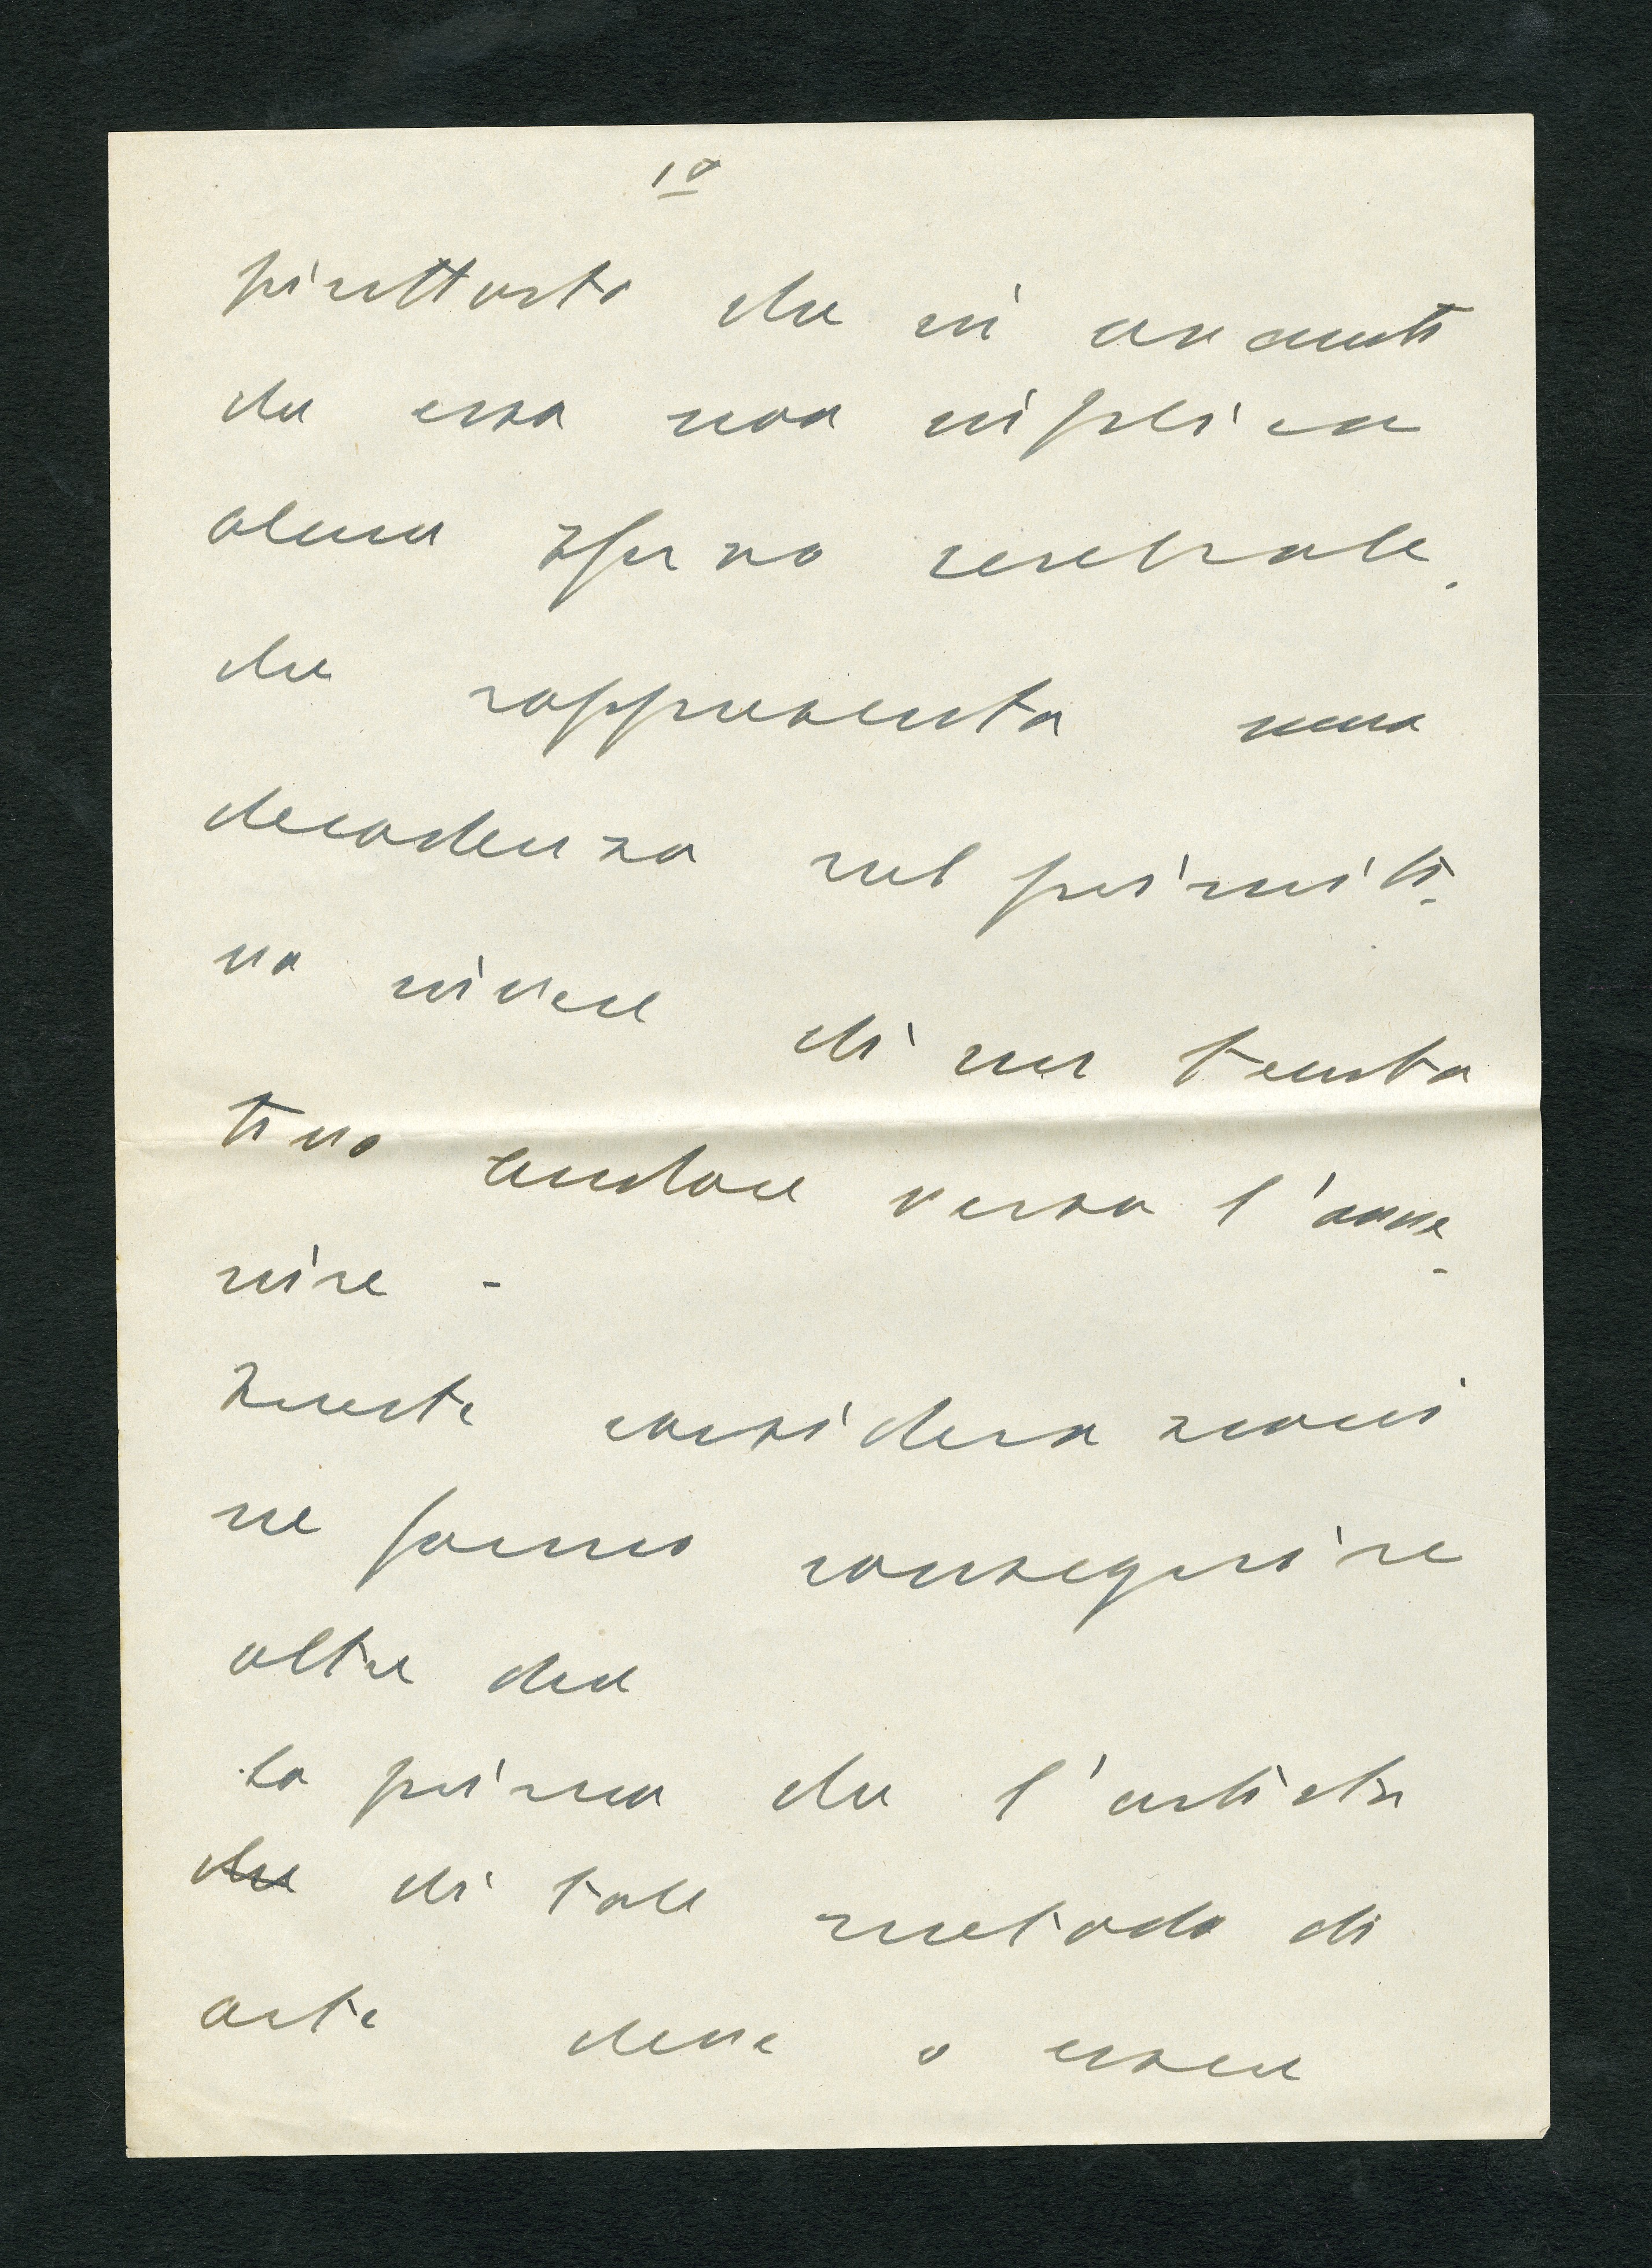 10
piuttosto che in avanti
che essa non implica
alcun sforzo cerebrale.
che rappresenta una
decadenza nel primiti-
vo invece di un tenta
tivo audace verso l'avve-
nire -
Queste considerazioni
ne fanno conseguire
altre due
la prima che l'artista
che di tale metodo di
arte deve o essere